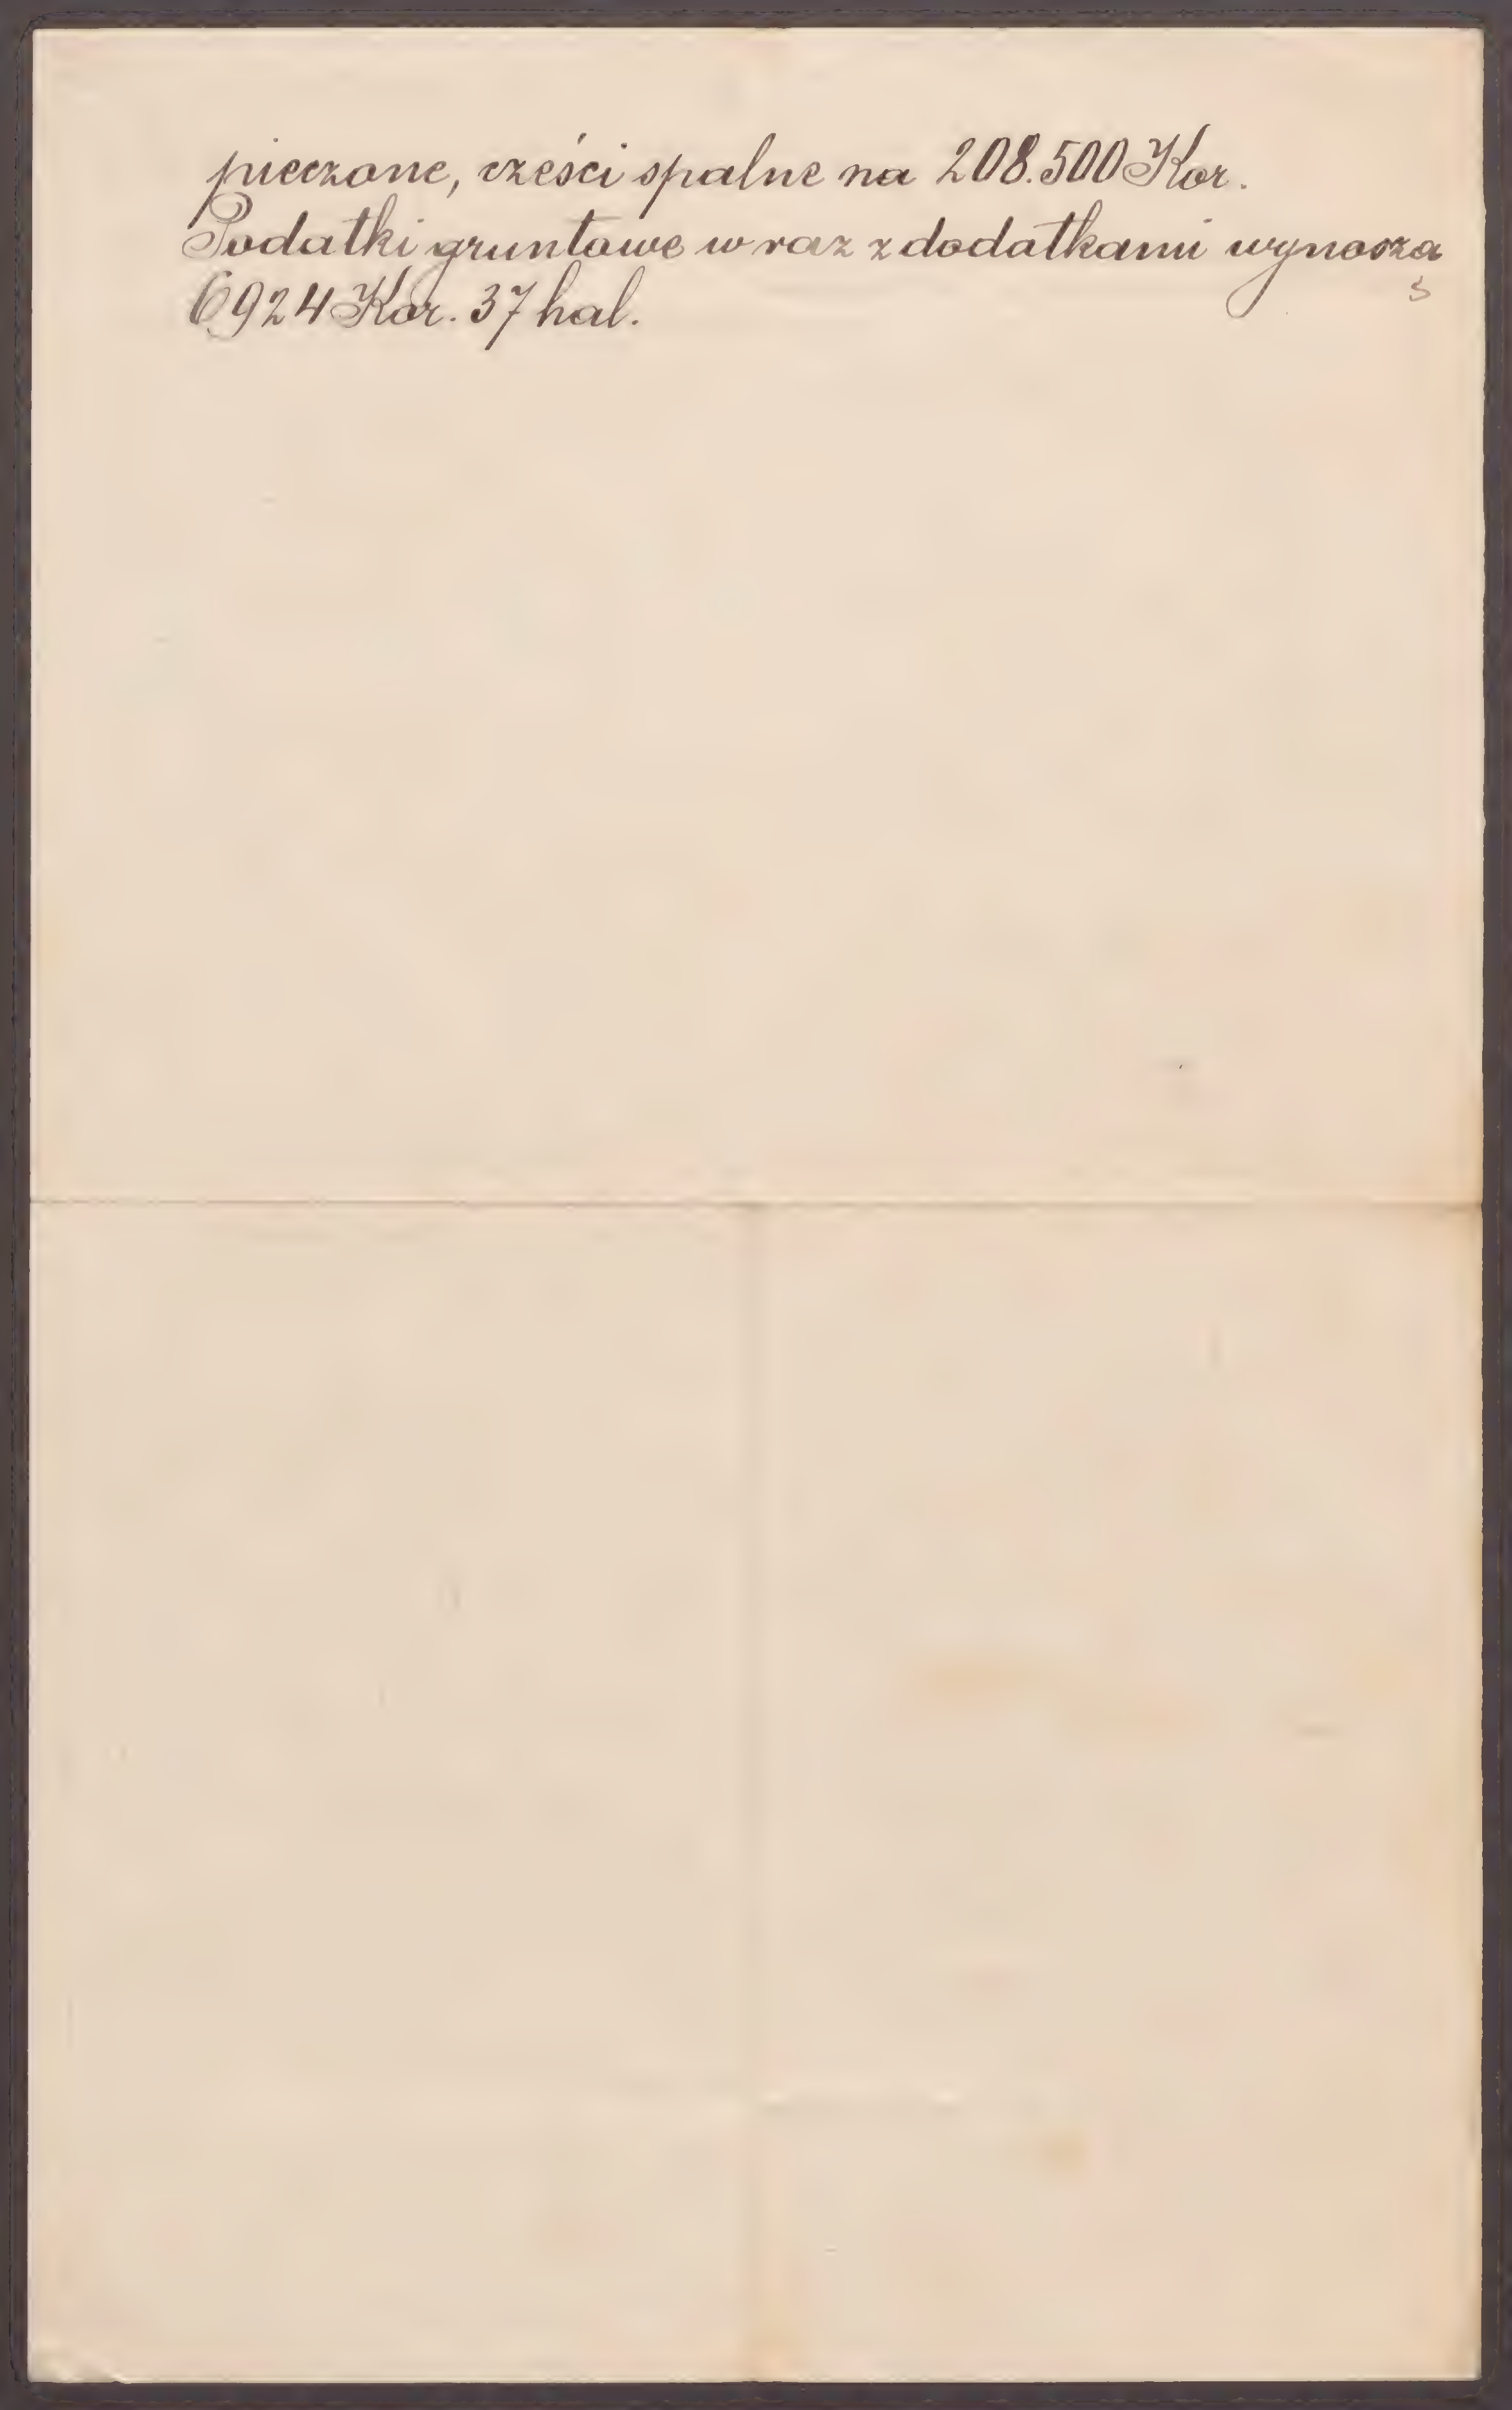 pieczone, cześci spalne na 208.500 Kor.
Podatki gruntowe wraz z dodatkami wynoszą
6924 Kor. 37 hal.